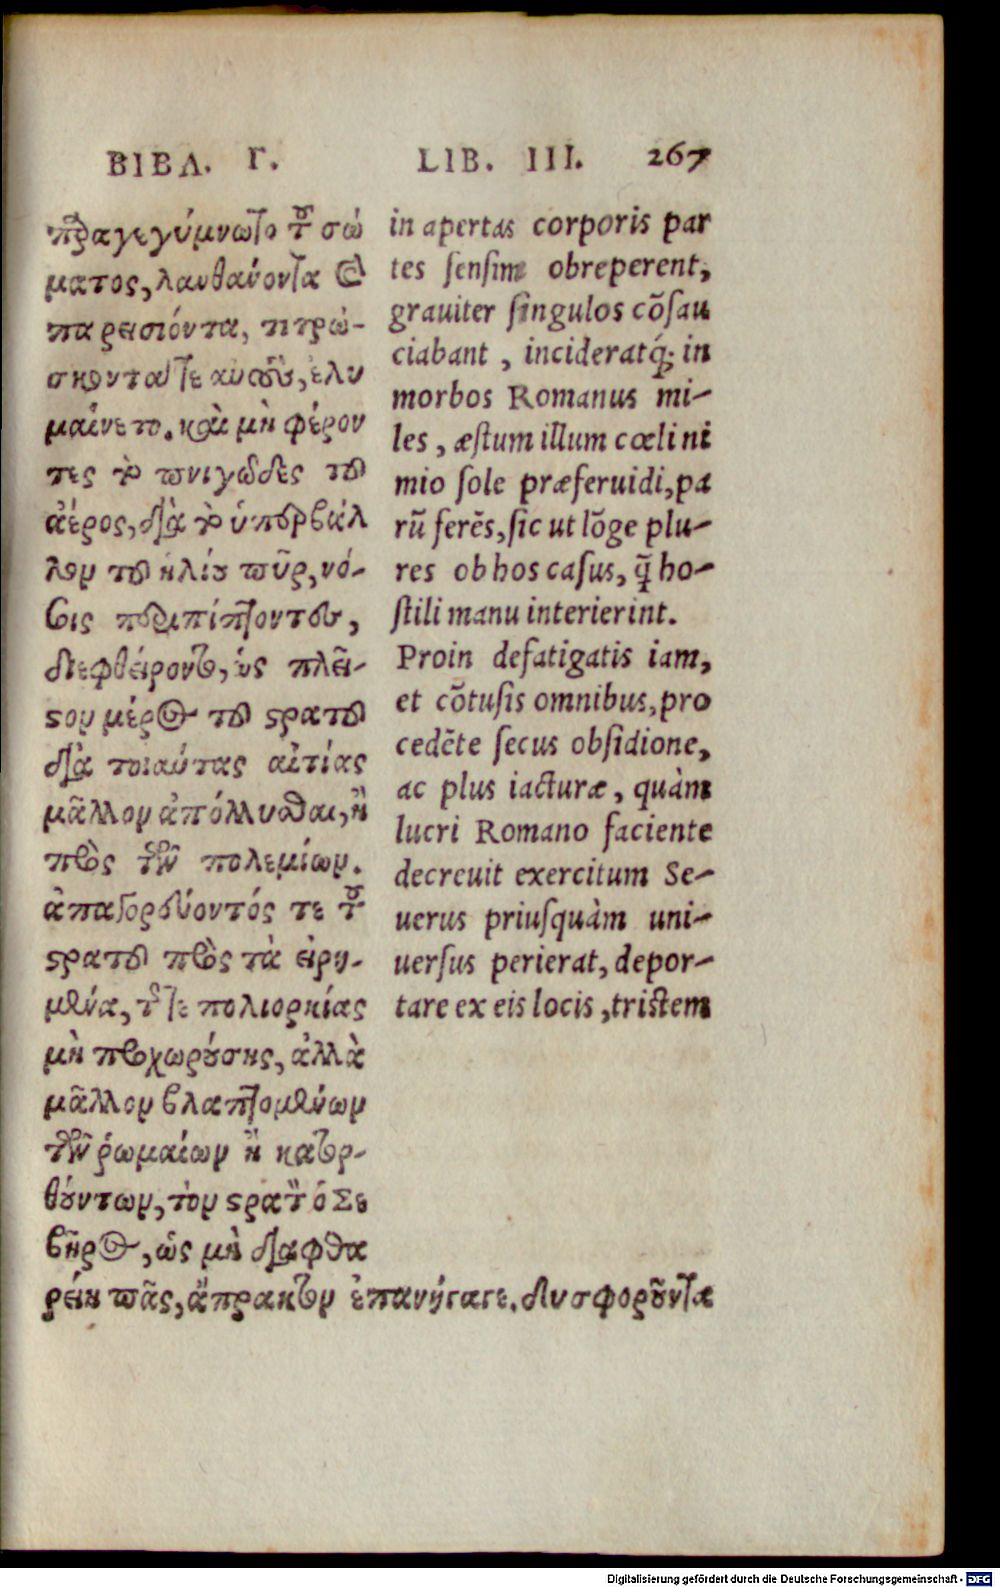 ΒΙΒΛ. Γ.
παραγεγύμνωτο τοῦ σώ
ματος, λανθάνοντα καὶ
παρεισιόντα, τιτρώ-
σκοντά τε αὐτοὺς, ἐλυ
μαίνετο. καὶ μὴ φέρον
τες τὸ πνιγῶδες τοῦ
ἀέρος, διὰ τὸ ὑπερβάλ
λον τοῦ ἡλίου πῦρ, νό-
σοις περιπίπτοντες,
διεφθείροντο, ὡς πλεῖ-
στον μέρος τοῦ στρατοῦ
διὰ τοιαύτας αἰτίας
μᾶλλον ἀπόλλυσθαι, ἢ
πρὸς τῶν πολεμίων.
ἀπαγορεύοντός τε τοῦ
στρατοῦ πρὸς τὰ εἰρη-
μένα, τῆς τε πολιορκίας
μὴ προχωρούσης, ἀλλὰ
μᾶλλον βλαπτομένων
τῶν ῥωμαίων ἢ κατορ-
θούντων, τὸν στρατὸν ὁ Σε
βῆρος, ὡς μὴ διαφθα
ρείη πᾶς, ἄπρακτον ἐπανήγαγε. δυσφοροῦντα
LIB. III. 267
in apertas corporis par
tes sensim obreperent,
grauiter singulos cõsau
ciabant, incideratq́; in
morbos Romanus mi-
les, æstum illum cœli ni
mio sole præferuidi, pa
rũ ferẽs, sic ut lõge plu-
res ob hos casus, q̃ ho-
stili manu interierint.
Proin defatigatis iam,
et cõtusis omnibus, pro
cedẽte secus obsidione,
ac plus iacturæ, quàm
lucri Romano faciente
decreuit exercitum Se-
uerus priusquàm uni-
uersus perierat, depor-
tare ex eis locis, tristem
Digitalisierung gefördert durch die Deutsche Forschungsgemeinschaft - DFG